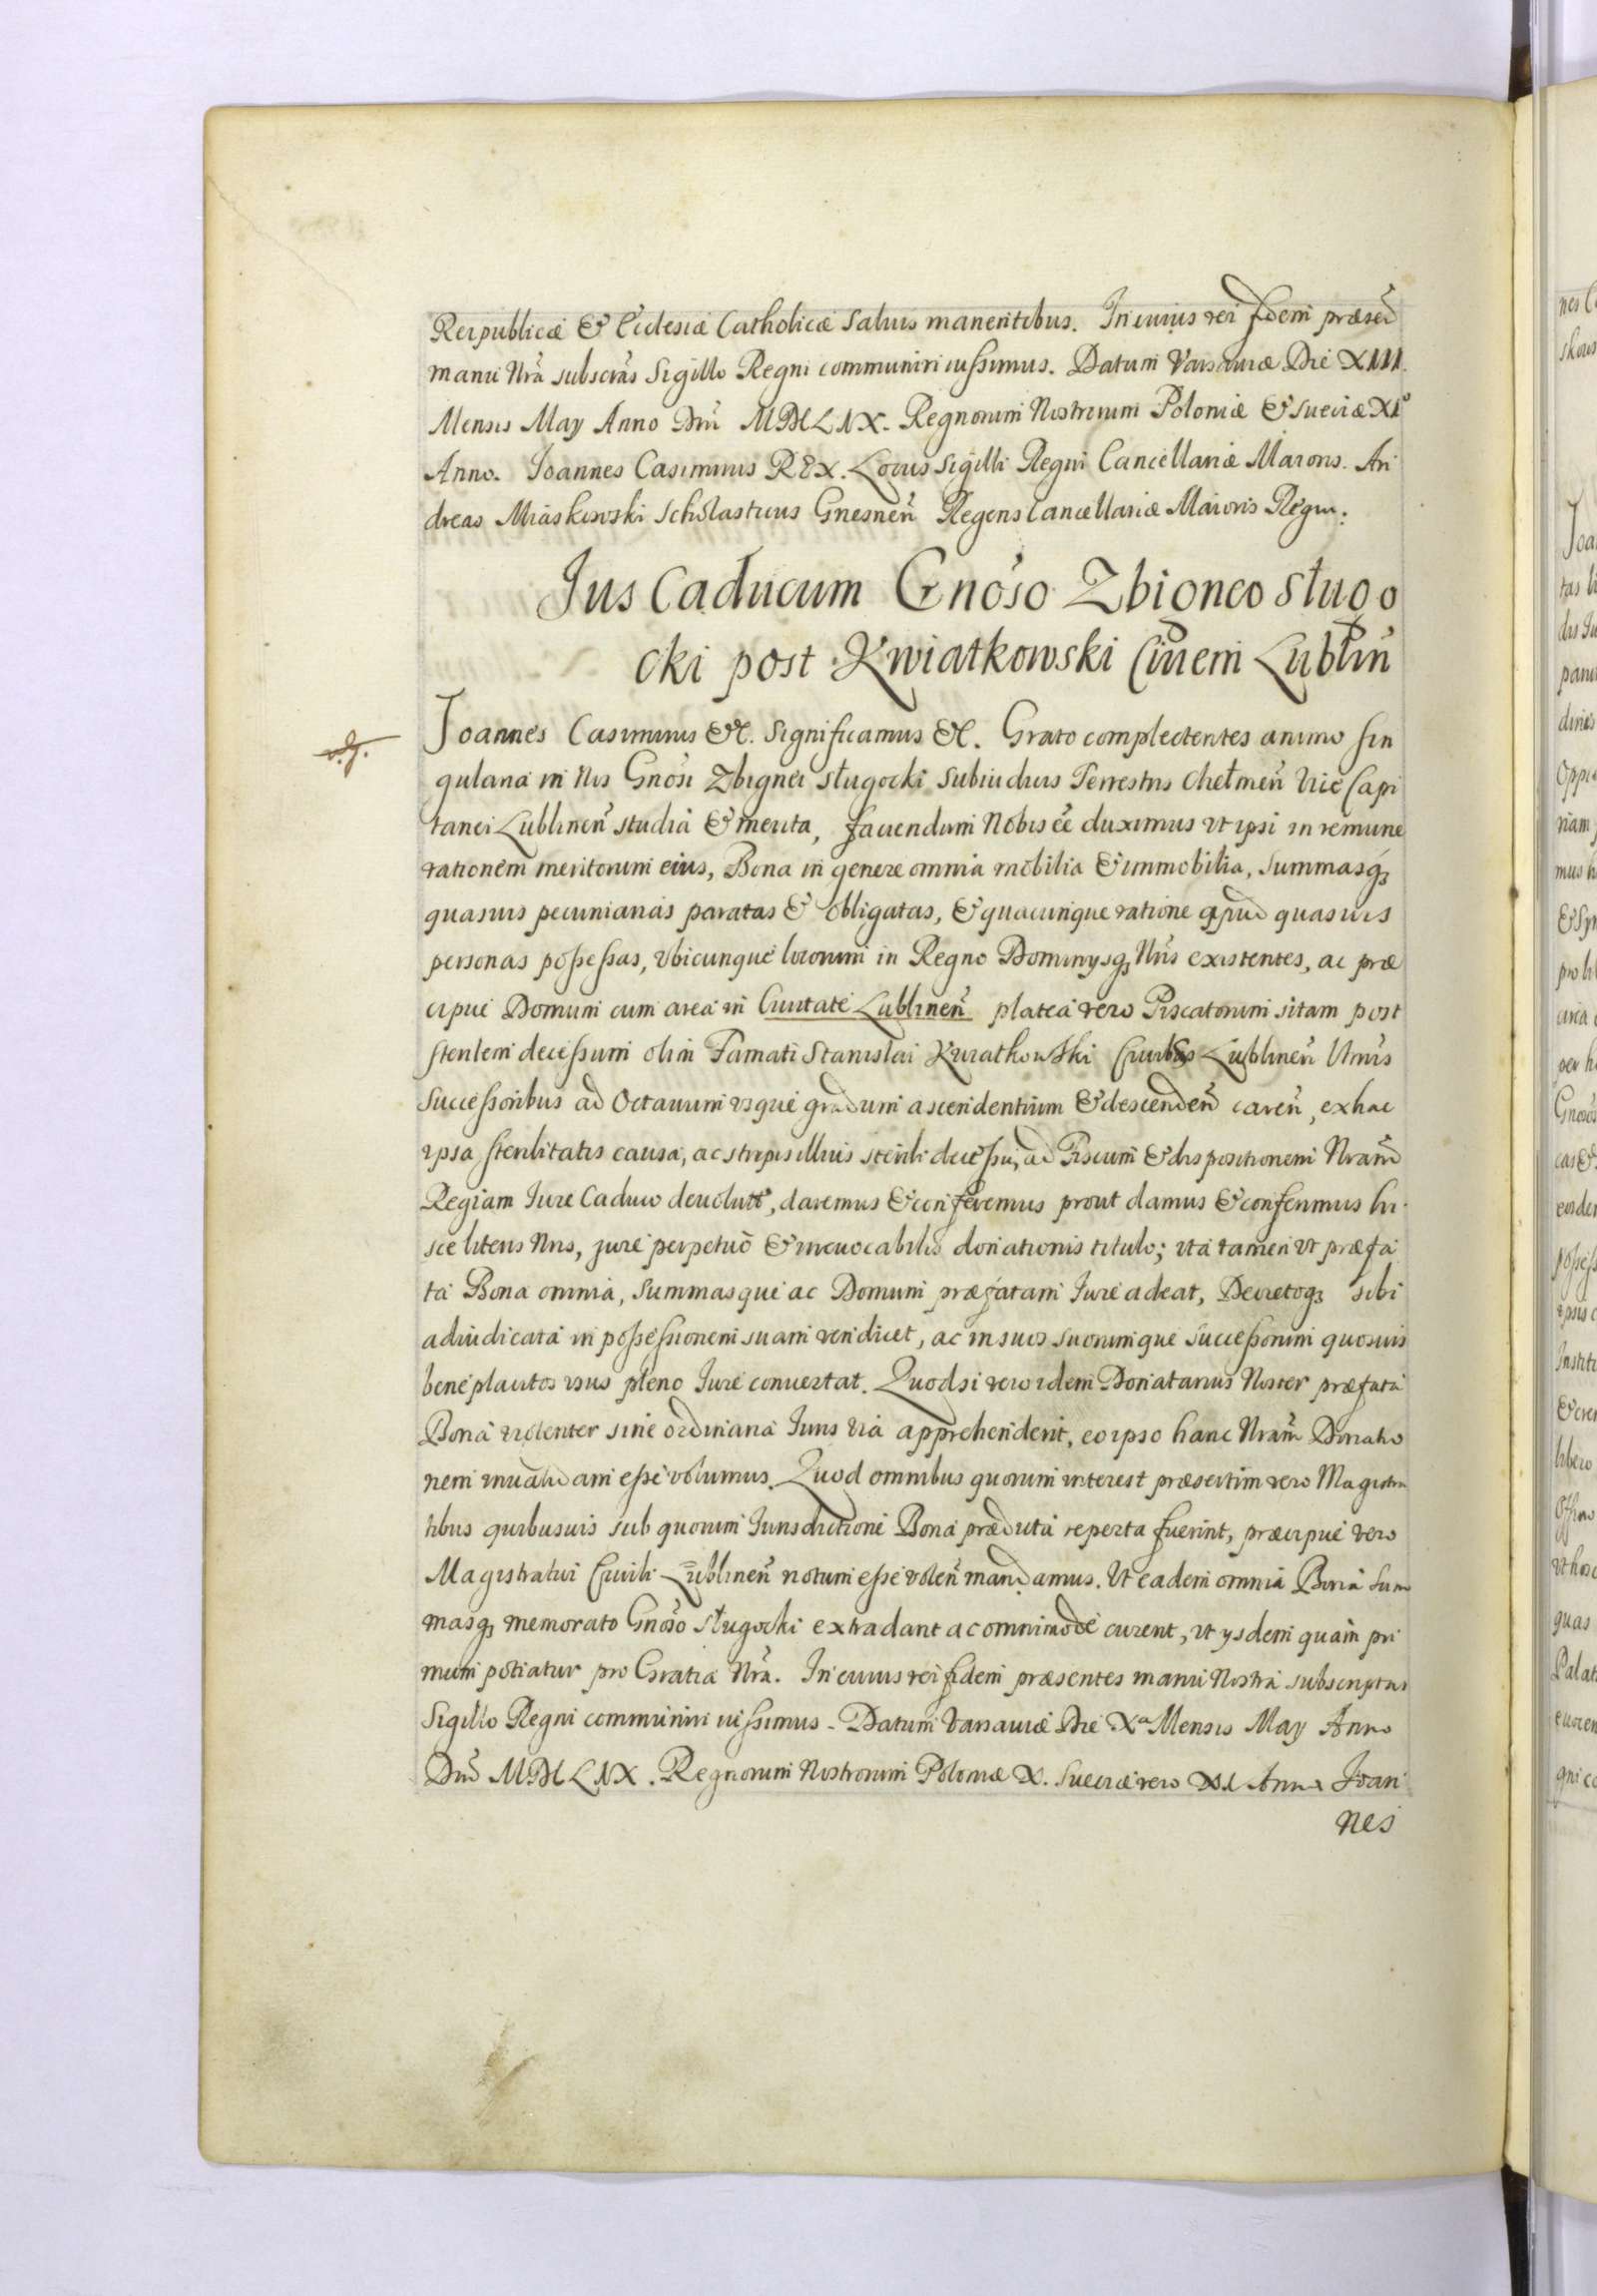 Reipublicæ & Ecclesiæ Catholicæ saluis manentibus. In cuius rei fidem præseñ
manu Nrã subscrãs Sigillo Regni communiri iussimus. Datum Varsauiæ Die XIII.
Mensis May Anno Dni MDCLIX. Regnorum Nostrorum Poloniæ & Sueciæ XIº
Anno. Joannes Casimirus REX. Locus Sigilli Regni Cancellariæ Maioris. An
dreas Miaskowski Scholasticus Gnesnen̄ Regens Cancellariæ Maioris Regni.
Jus Caducum Gnoso Zbioneo Sługo
cki post Kwiatkowski Ciuem Lublin̄
Joannes Casimirus &c. Significamus &c. Grato complectentes animo sin
gularia in Nos Gnosi Zbignei Sługocki Subiudicis Terrestris Chełmen̄ Vice Capi
tanei Lublinen̄ studia & merita, faciendum Nobis ēē duximus vt ipsi in remune
rationem meritorum eius, Bona in genere omnia mobilia & immobilia, summasq3
quasuis pecuniarias paratas & obligatas, & quacunque ratione apud quasuis
personas possessas, vbicunque locorum in Regno Dominysq3 Nris existentes, ac præ
cipue Domum cum area in Ciuitate Lublinen̄ platea vero Piscatorum sitam post
sterilem decessum olim Famati Stanislai Kwiatkowski Ciuis Lublinen̄ Vtriusq
successoribus ad Octauum vsque gradum ascendentium & descenden̄ caren̄, ex hac
ipsa sterilitatis causa, ac stirpis illius sterili decessu, ad Fiscum & dispositionem Nram
Regiam Jure Caduco deuolut, daremus & conferemus prout damus & conferimus hi
sce literis Nris, jure perpetuo & irreuocabilis donationis titulo; ita tamen vt præfa
ta Bona omnia, Summasque ac Domum præfatam Jure adeat, Decretoq3 sibi
adiudicata in possessionem suam vendicet, ac in suos suorumque successorum quosuis
beneplacitos vsus pleno Jure conuertat. Quodsi vero idem Donatarius Noster præfata
Bona violenter sine ordinaria Juris via apprehenderit, eo ipso hanc Nram Donatio
nem inualidam esse volumus. Quod omnibus quorum interest præsertim vero Magistra
tibus quibusuis sub quorum Jurisdictione Bona prædicta reperta fuerint, præcipue vero
Magistratui Ciuili Lublinen̄ notum esse volen̄ mandamus. Vt eadem omnia Bona sum
masq3 memorato Gnoso Sługocki extradant ac omnimode curent, vt ysdem quam pri
mum potiatur pro Gratia Nra. In cuius rei fidem præsentes manu Nostra subscriptas
Sigillo Regni communiri iussimus. Datum Varsauiæ Die Xª Mensis May Anno
Dni MDCLIX. Regnorum Nostrorum Poloniæ X. Sueciæ vero XI Anno Joan
nes